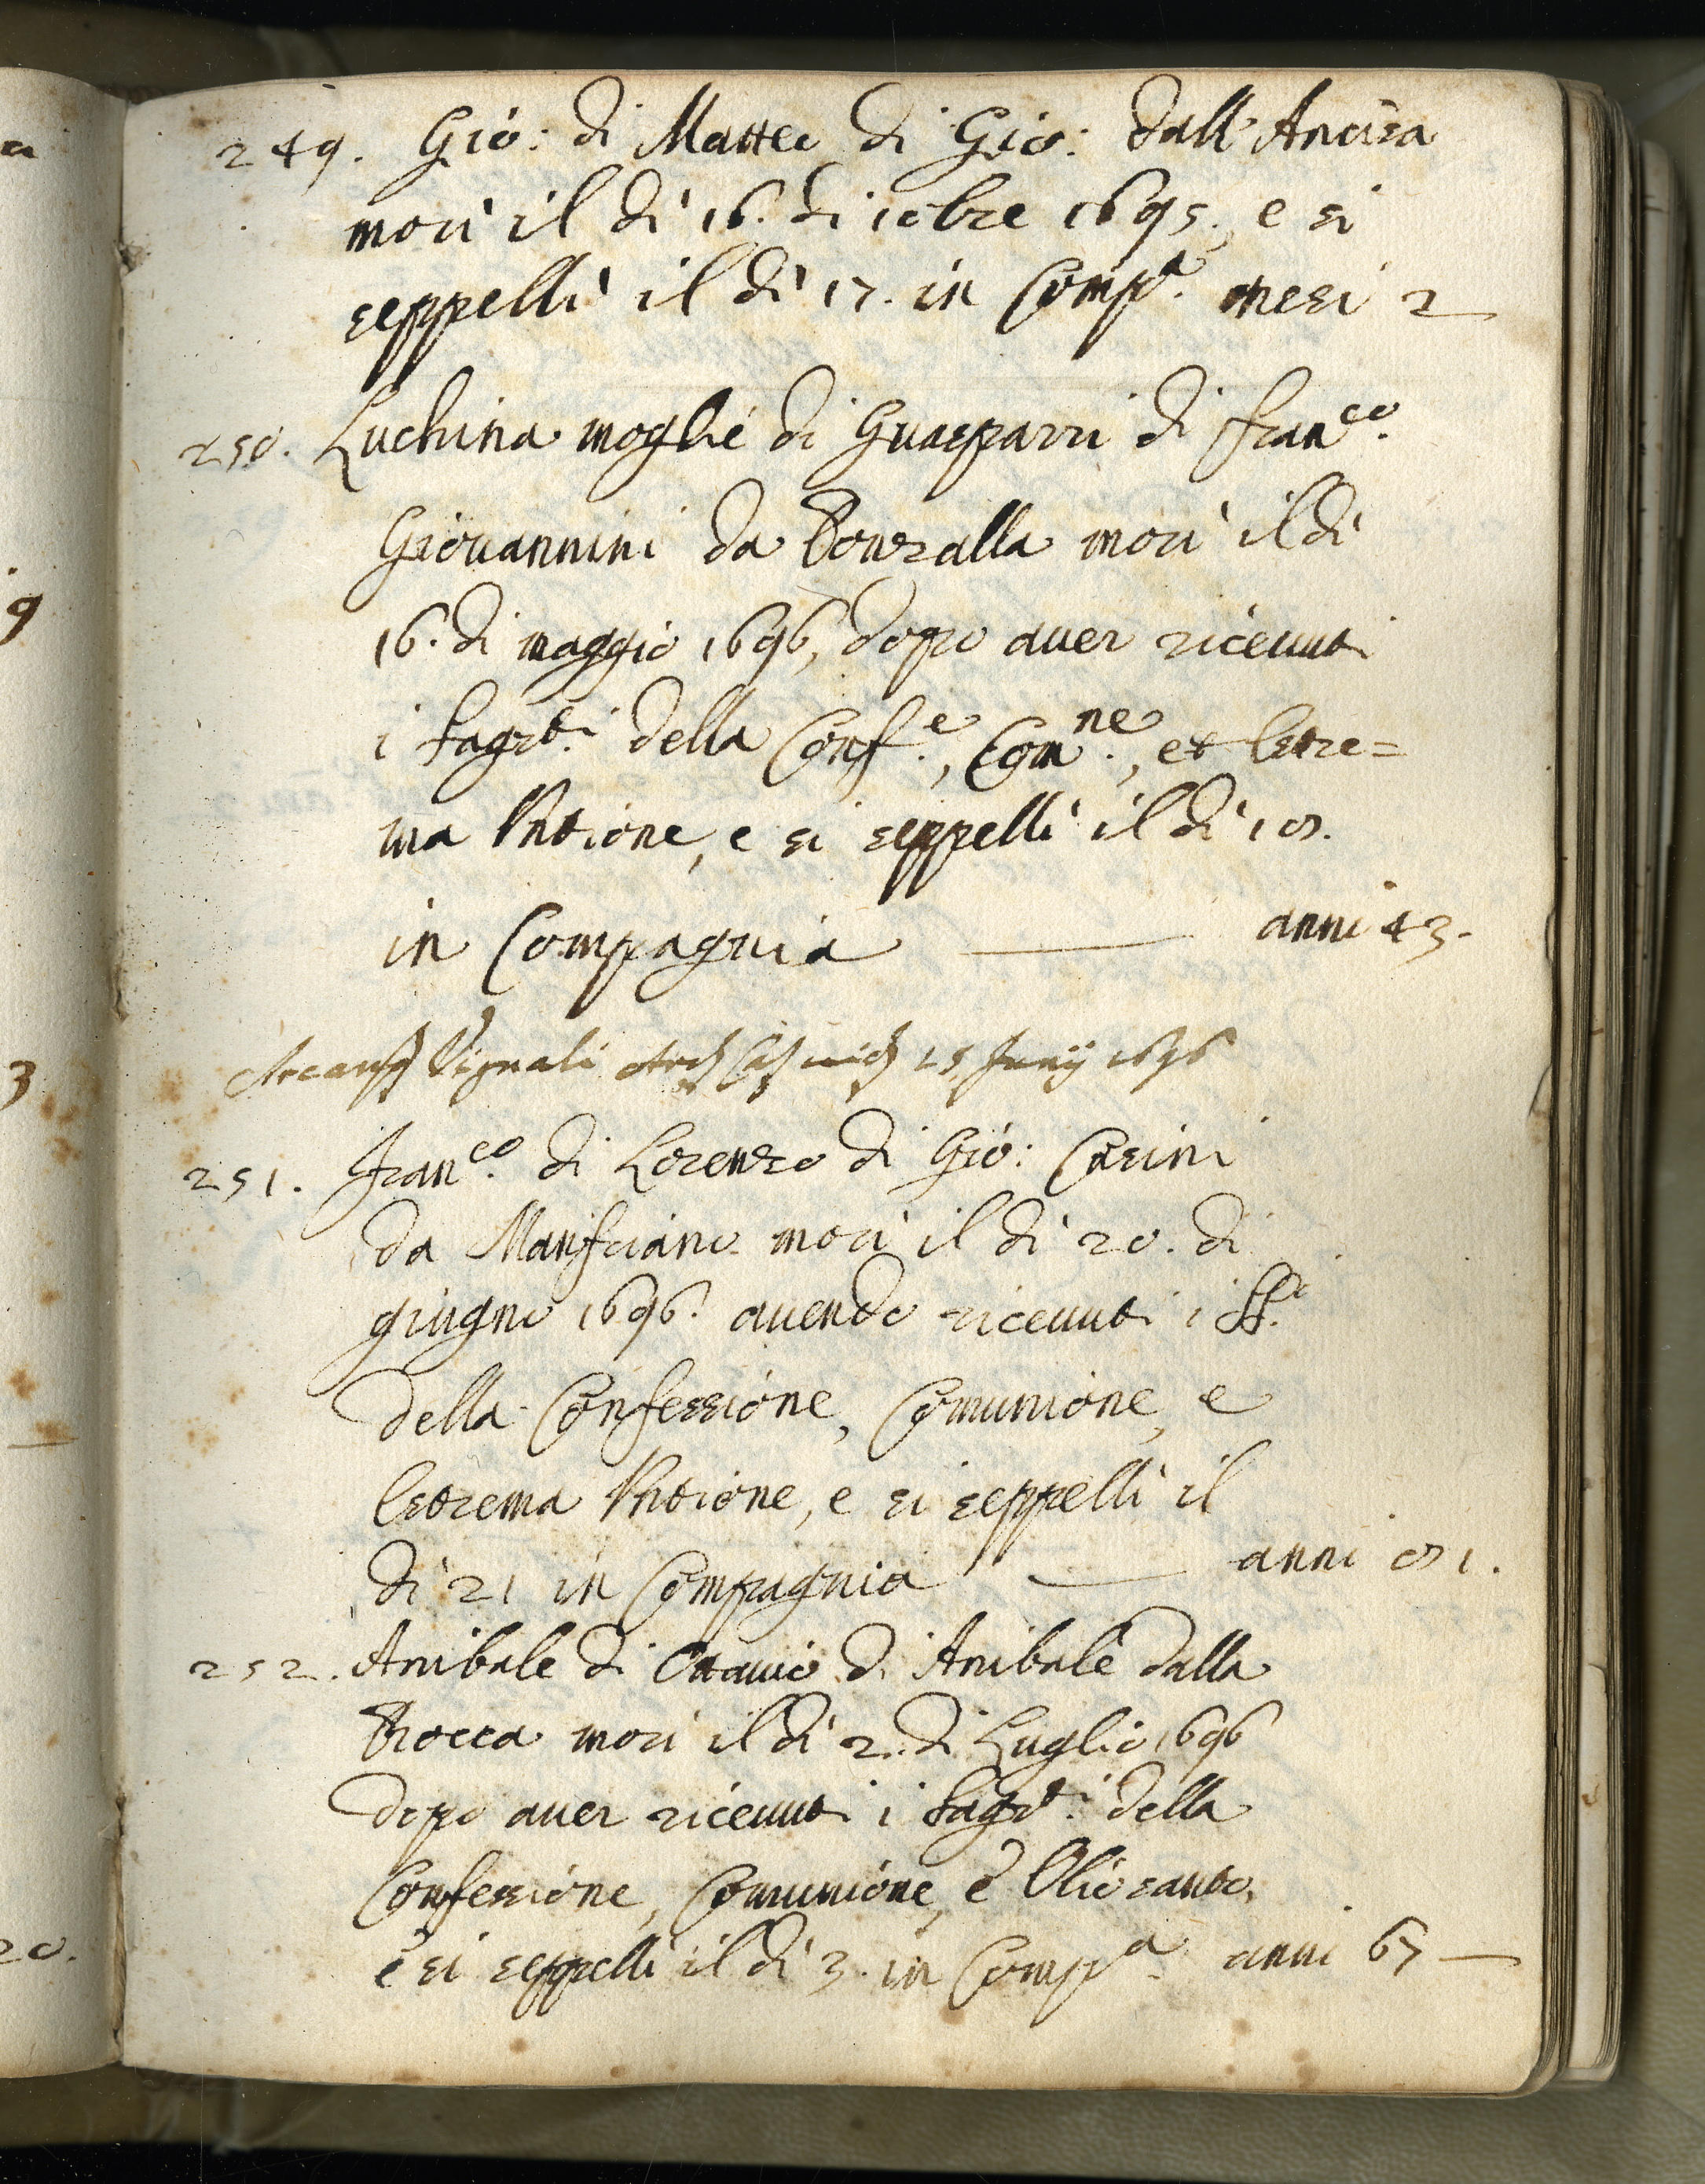 249. Gio: di Matteo di Gio: dall'Ancisa
morì il dì 16. di 10bre 1695., e si
seppellì il dì 17. in Comp.a mesi 2
250. Luchina moglie di Guasparri di Fran.co
Giovannini da Ponzalla morì il dì
16. di maggio 1696, dopo auer riceuuti
i Sagr.ti della Conf.e, Com.ne, et Estre=
ma Untione, e si seppellì il dì 18.
in Compagnia anni 43.
Vignali 25 Junij 1696
251. Fran.co di Lorenzo di Gio: Casini
da Mansciano morì il dì 20. di
giugno 1696. auendo riceuuti i SS.ti
della Confessione, Comunione, e
Estrema Untione, e si seppellì il
dì 21 in Compagnia anni 81.
252. Anibale di Ottauio di Anibale dalla
Rocca morì il dì 2. di Luglio 1696
dopo auer riceuuti i Sagr.ti della
Confessione, Comunione, e Olio santo,
e si seppellì il dì 3. in Comp.a anni 67
a
9
3
20.